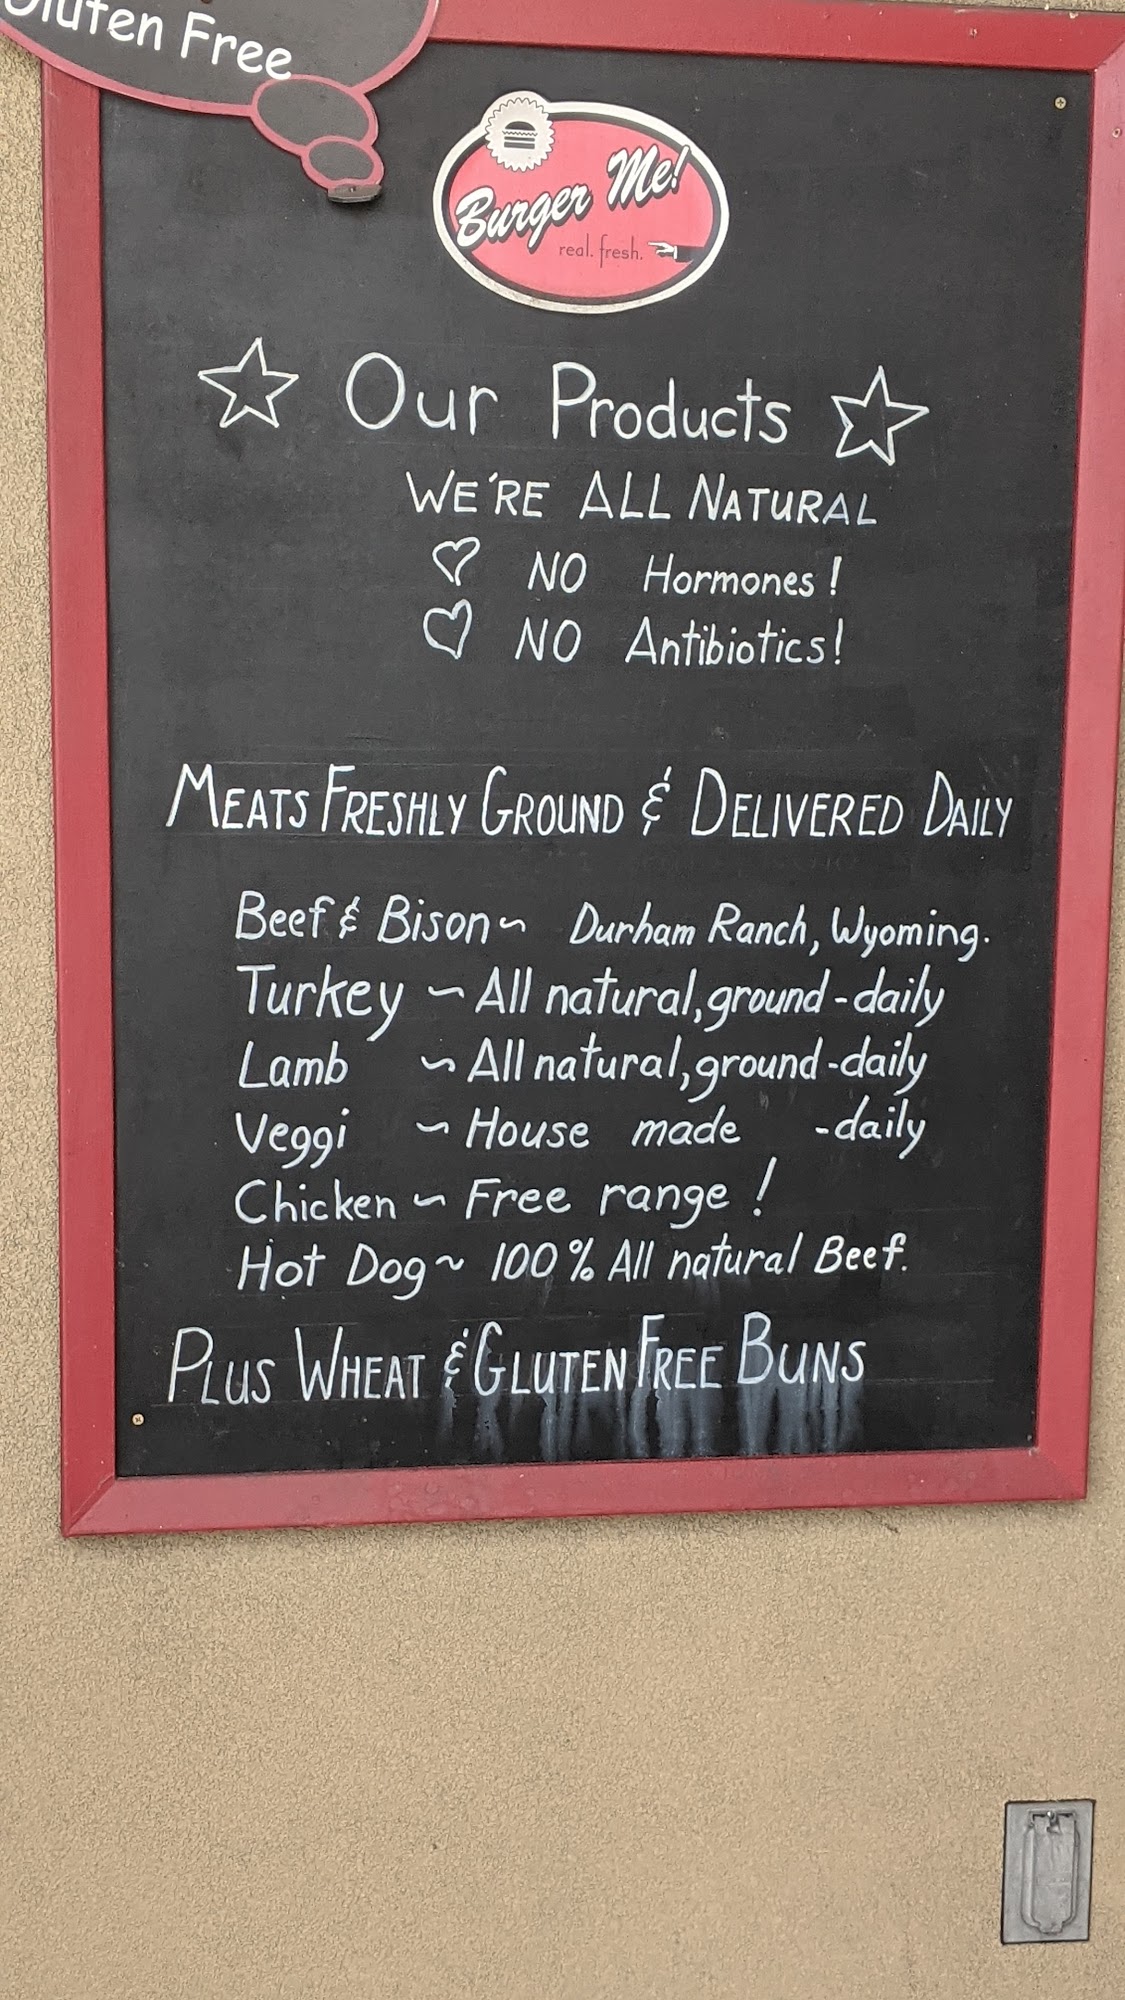 Gluten Free
Burger Me!
real. fresh.
Our Products
WE'RE ALL NATURAL
NO Hormones!
NO Antibiotics!
MEATS FRESHLY GROUND & DELIVERED DAILY
Beef & Bison ~ Durham Ranch, Wyoming.
Turkey ~ All natural, ground-daily
Lamb ~ All natural, ground-daily
Veggi ~ House made -daily
Chicken ~ Free range!
Hot Dog ~ 100% All natural Beef.
PLUS WHEAT & GLUTEN FREE BUNS